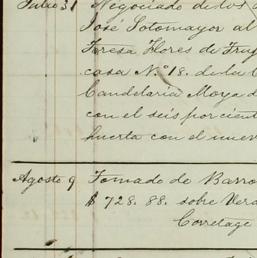 Julio 31 Negociado de los
José Sotomayor al
Teresa Flores de Fru
casa Nº 18. de la C
Candelaria Moya d
con el seis por cient
huerta con el nuev
Agosto 9 Tomado de Barro
$ 728.88. sobre Vera
Corretage